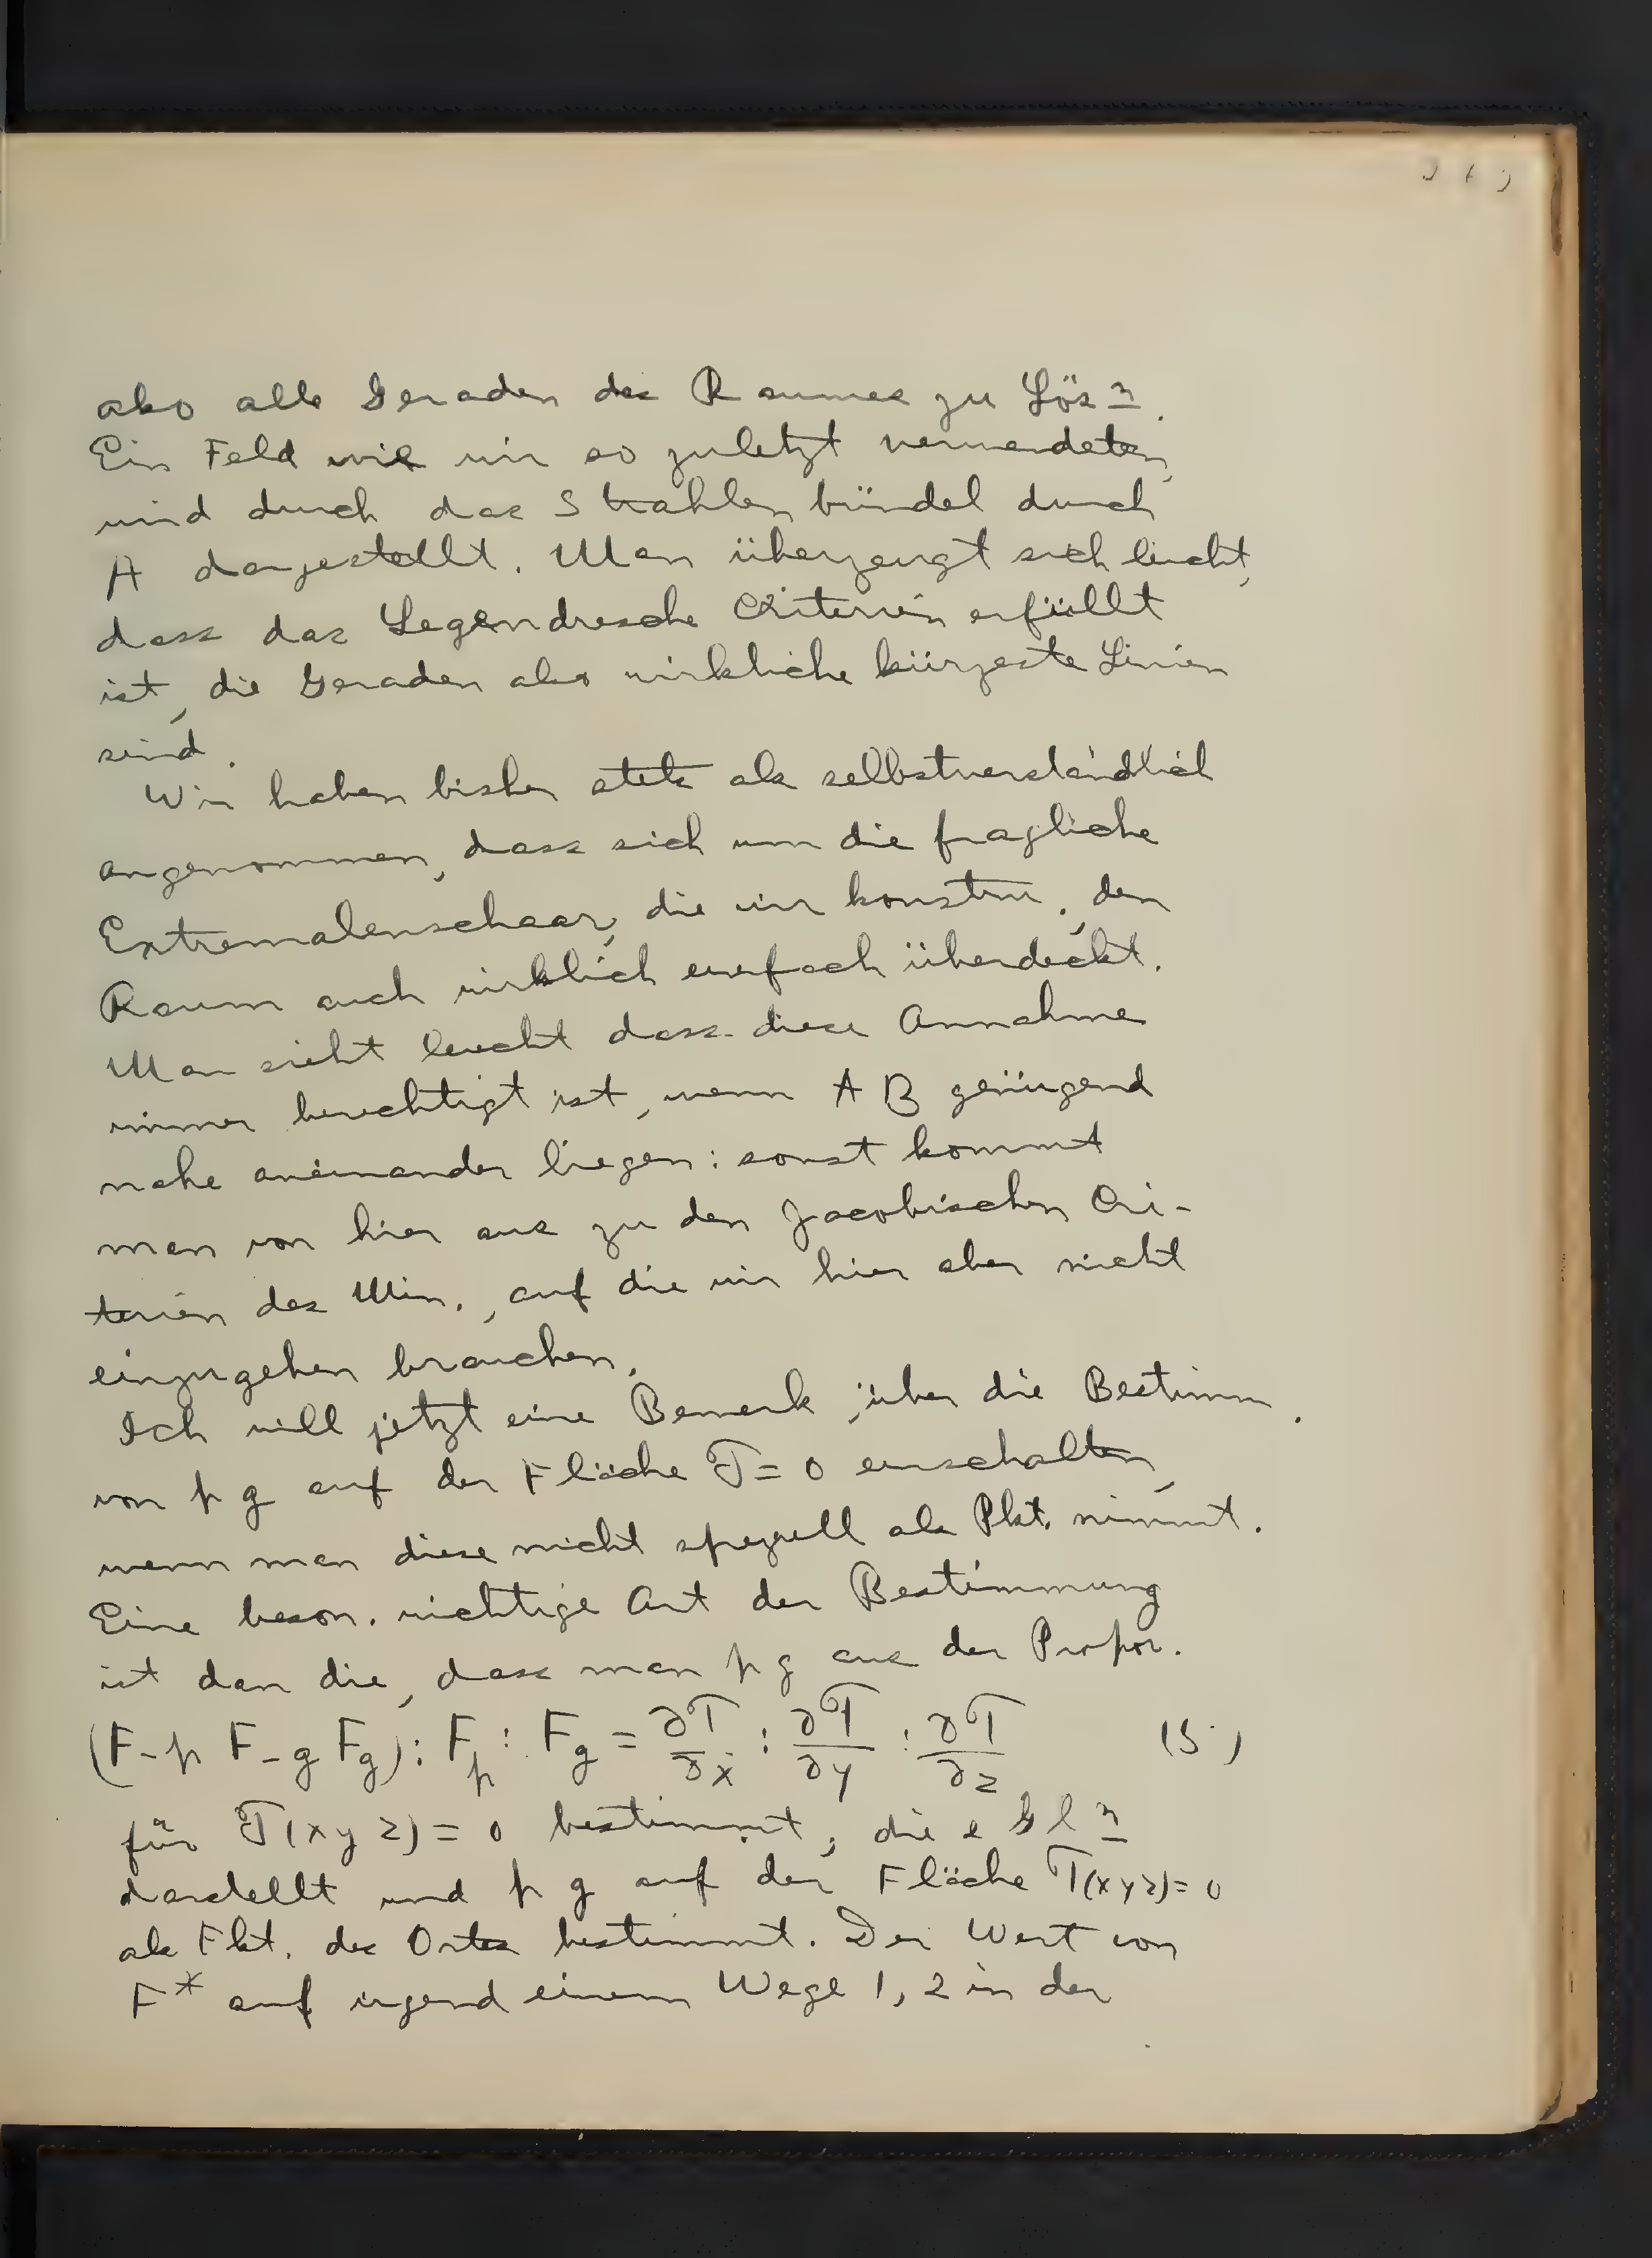 also alle Geraden des Raumes zu Lös<u>n</u>.
Ein Feld wie wir es zuletzt verwendeten,
wird durch das Strahlenbündel durch
A dargestellt. Man überzeugt sich leicht,
dass das Legendresche Criterien erfüllt
ist, die Geraden also wirkliche kürzeste Linien
sind.
Wir haben bisher stets als selbstverständlich
angenommen, dass sich um die fragliche
Extremalenschaar, die wir konstru., den
Raum auch wirklich einfach überdeckt.
Man sieht leicht dass diese Annahme
immer berechtigt ist, wenn A B genügend
nahe aneinander liegen: sonst kommt
man von hier aus zu den Jacobischen Cri-
terien des Min., auf die wir hier aber nicht
einzugehen brauchen.
Ich will jetzt eine Bemerk. über die Bestimm.
von p q auf der Fläche T = 0 einschalten,
wenn man diese nicht speziell als Pkt. nimmt.
Eine beson. wichtige Art der Bestimmung
ist dan die, dass man p q aus der Propor.
(F - p F - q F_q) : F_p : F_q = ∂T/∂x : ∂T/∂y : ∂T/∂z (5.)
für T(x y z) = 0 bestimmt, die 2 Gl<u>n</u>
darstellt und p q auf der Fläche T(x y z) = 0
als Fkt. des Ortes bestimmt. Der Wert von
F* auf irgend einem Wege 1, 2 in der